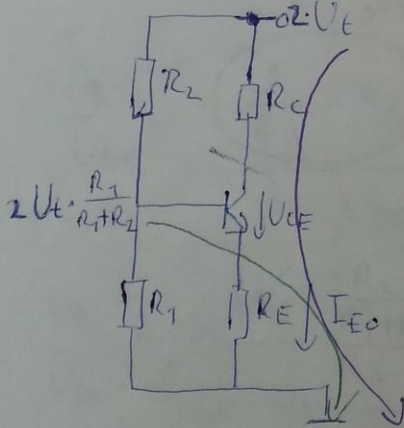 2·Ut
R2
RC
2Ut·R1/(R1+R2)
UCE
R1
RE
IE0